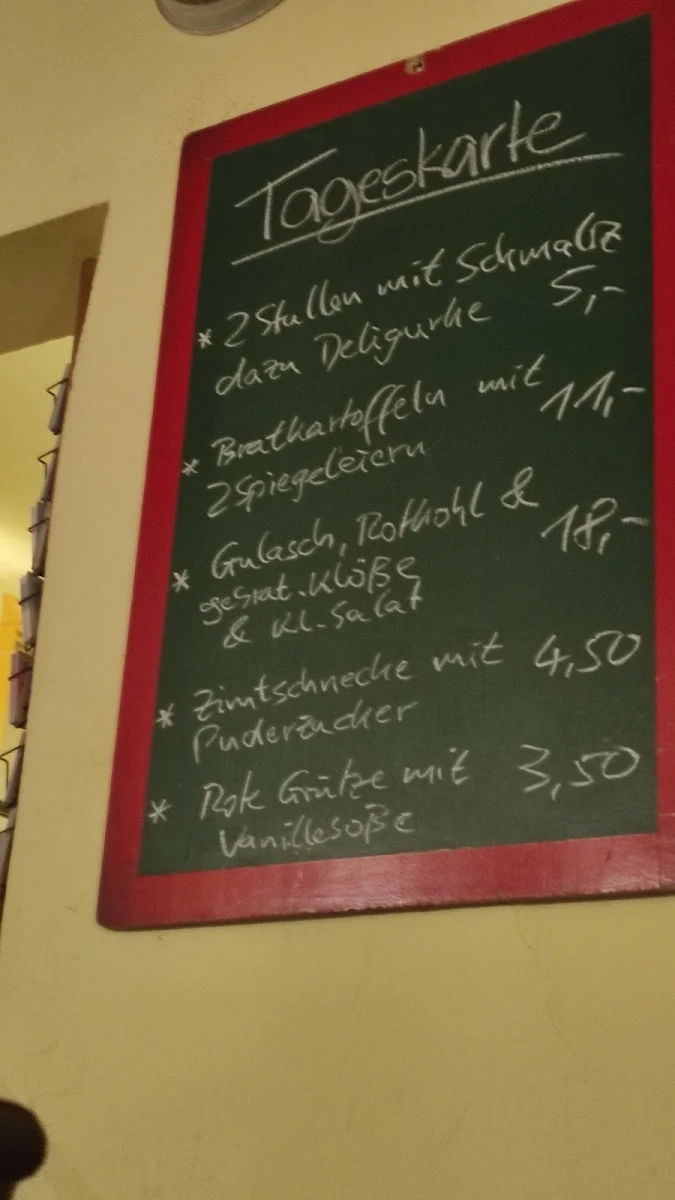 Tageskarte
* 2 Stullen mit Schmalz
dazu Deligurke 5,-
* Bratkartoffeln mit 11,-
2 Spiegeleiern
* Gulasch, Rotkohl & 18,-
gebrat. Klöße
& kl. Salat
* Zimtschnecke mit 4,50
Puderzucker
* Rote Grütze mit 3,50
Vanillesoße